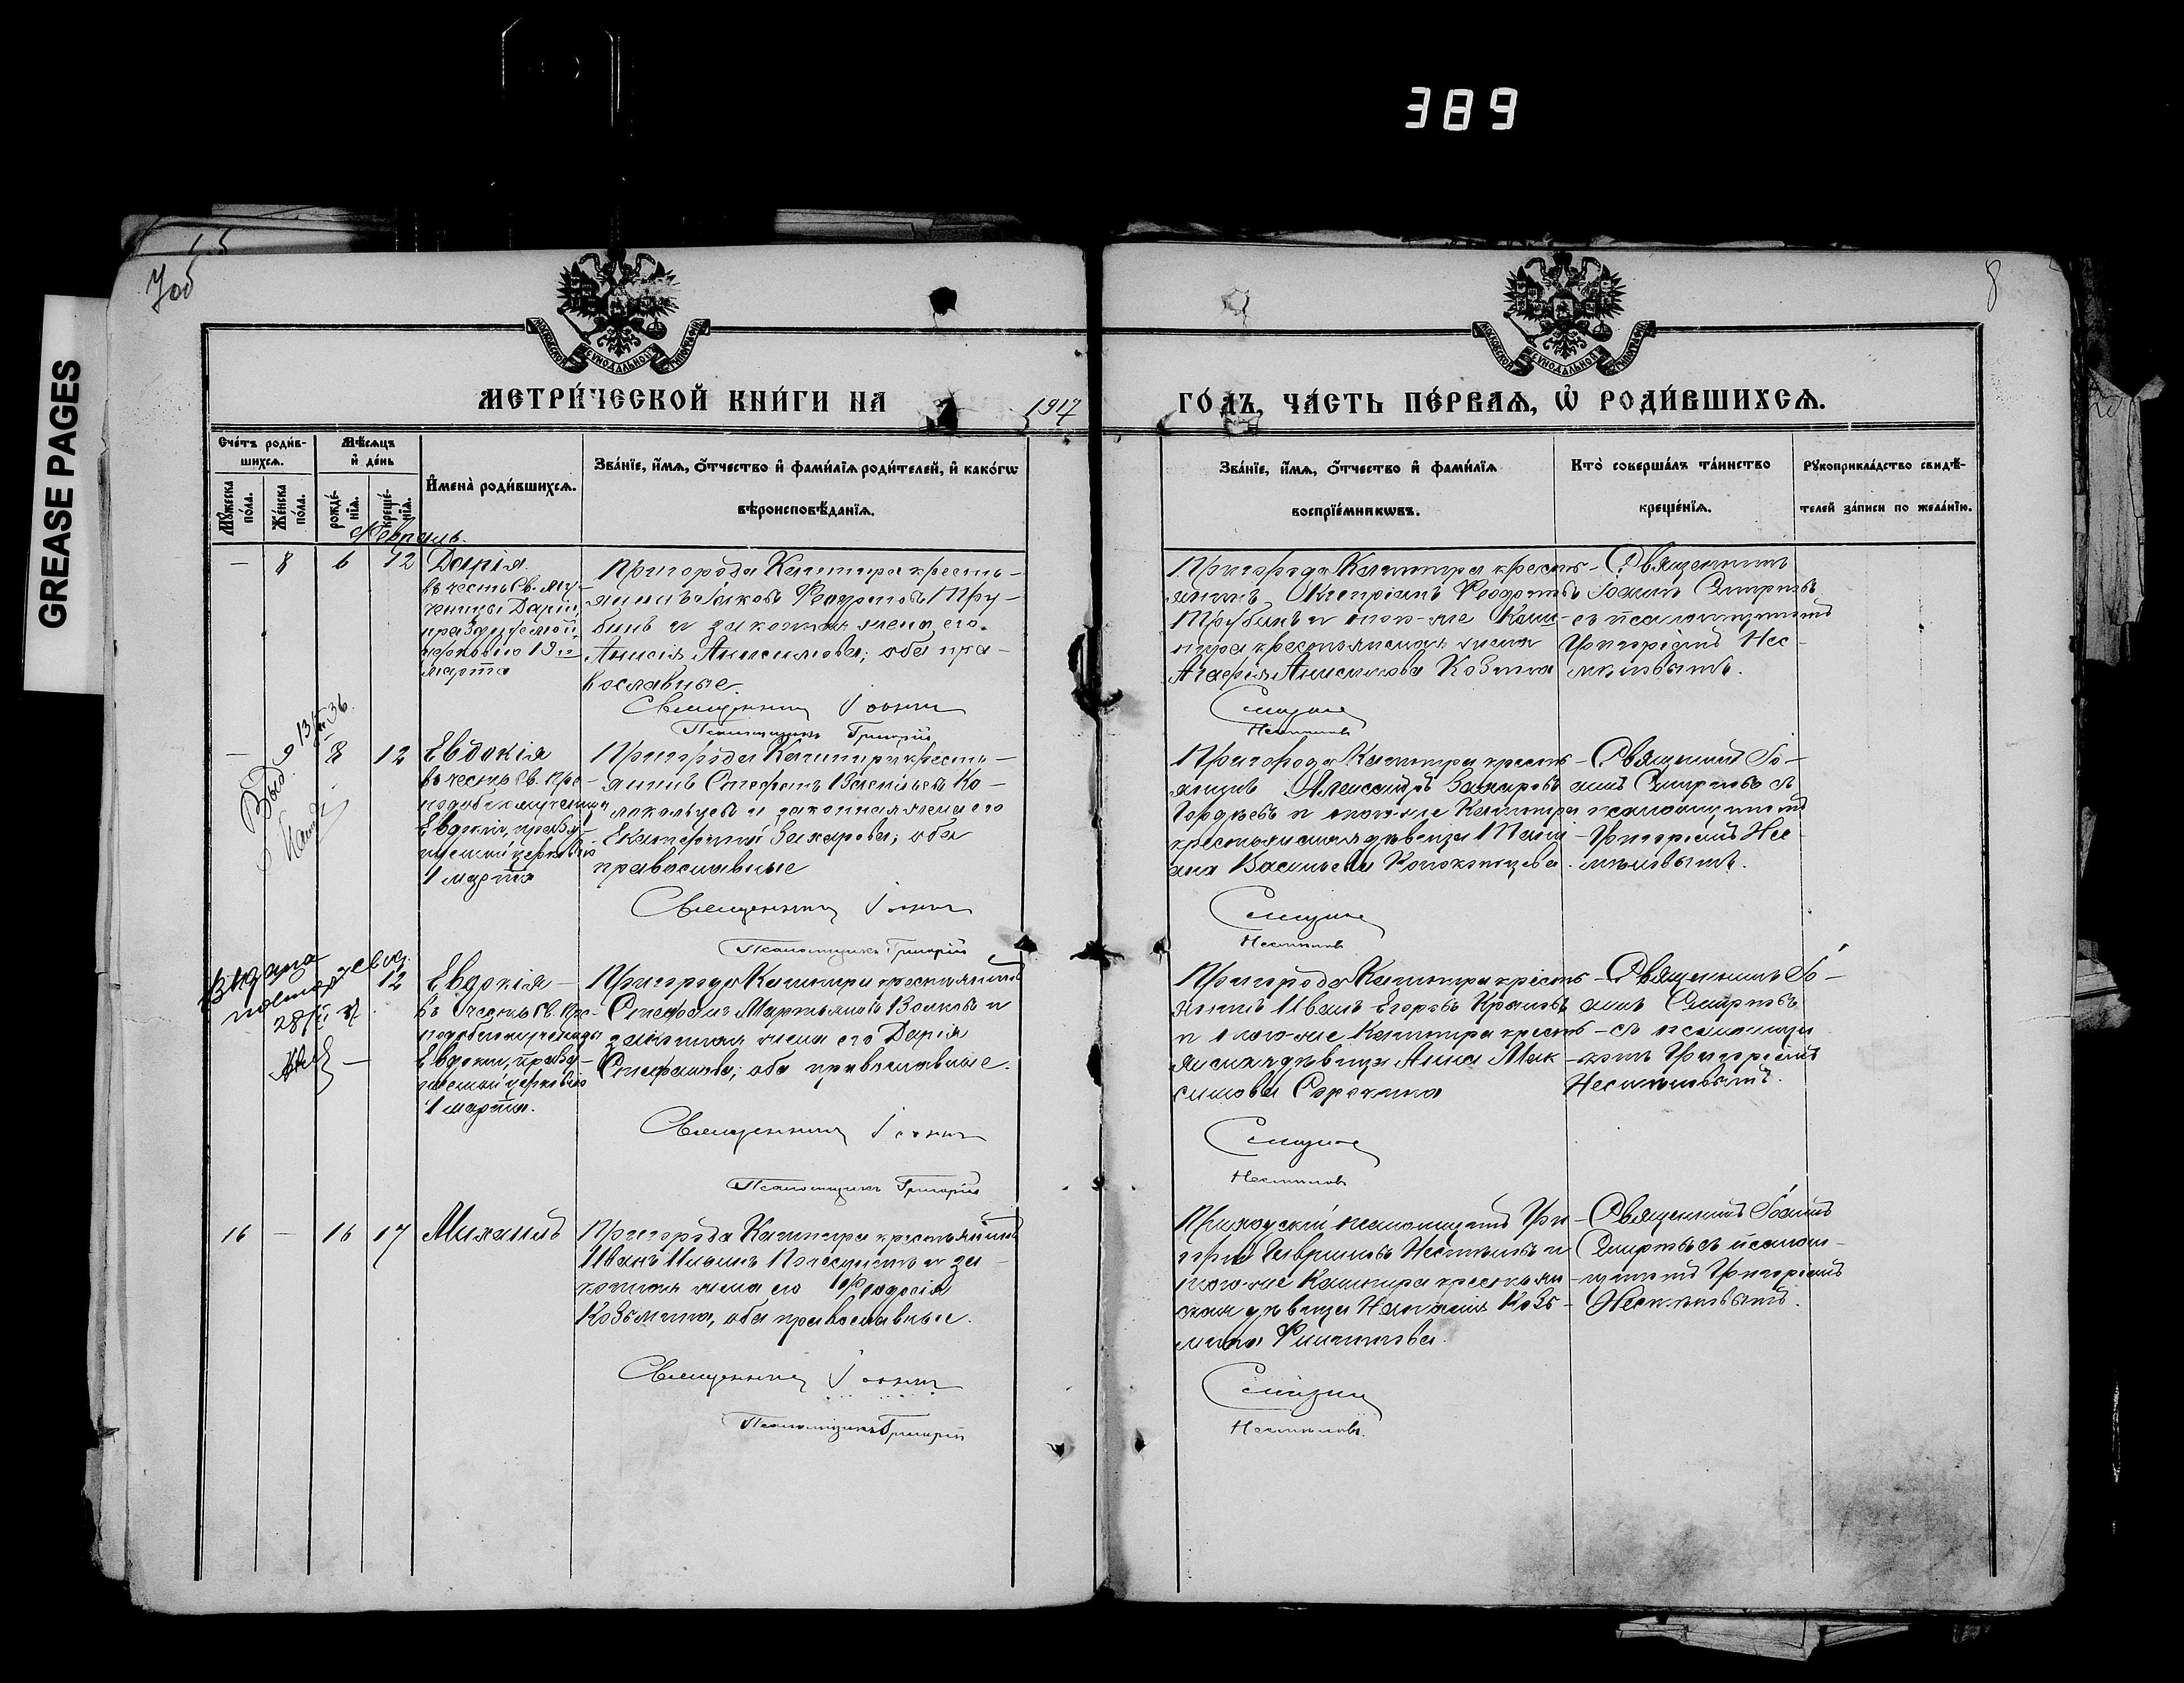 389
GREASE PAGES
7об
8
МОСКОВСКОЙ СѴНОДАЛЬНОЙ ТИПОГРАФІИ
МОСКОВСКОЙ СѴНОДАЛЬНОЙ ТИПОГРАФІИ
МЕТРИ́ЧЕСКОЙ КНИ́ГИ НА 1917 ГО́ДЪ, ЧА́СТЬ ПЕ́РВАѦ, Ѡ҆ РОДИ́ВШИХСѦ.
Сче́тъ роди́в-
шихсѧ.
Мꙋ́жеска по́ла.
Же́нска по́ла.
Мѣ́сѧцъ
и҆ де́нь
рожде́-
нїѧ.
креще́-
нїѧ.
И҆мена̀ роди́вшихсѧ.
Зва́нїе, и҆́мѧ, ѻ҆́тчество и҆ фами́лїѧ роди́телей, и҆ како́гѡ
вѣроисповѣ́данїѧ.
Зва́нїе, и҆́мѧ, ѻ҆́тчество и҆ фами́лїѧ
воспрїе́мникѡвъ.
Кто̀ соверша́лъ та́инство
креще́нїѧ.
Рꙋкоприкла́дство свидѣ́-
телей за́писи по жела́нїю.
Февраль.
— 8 6 12 Дарія
въ честь Св. му-
ченицы Даріи,
празднуемой
церковію 19го
марта
Пригорода Кашпира кресть-
янинъ Іаковъ Ѳеодотовъ Тру-
бинъ и законная жена его
Анисія Анисимова; оба пра-
вославные.
Священникъ Іоаннъ
Псаломщикъ Григорій
Пригорода Кашпира кресть-
янинъ Ѳеодотовъ
Трубинъ и того-же Каш-
пира крестьянская жена
Агафія Анисимова
Священникъ
Іоаннъ Смирновъ
съ псаломщикомъ
Григоріемъ Нес-
мѣловымъ.
Смирновъ
Несмѣловъ
Выд. 13/ 36.
— 9 8 12 Евдокія
въ честь Св. пре-
подобномученицы
Евдокіи, праздну-
емой церковію
1 марта
Пригорода Кашпира кресть-
янинъ Стефанъ Васильевъ Ко-
локольцевъ и законная жена его
Захарова; оба
православные
Священникъ Іоаннъ
Псаломщикъ Григорій
Пригорода Кашпира кресть-
янинъ Александръ Захаровъ
Гордѣевъ и того-же Кашпира
крестьянская дѣвица Тати-
ана Васильева Колокольцева.
Священникъ Іо-
аннъ Смирновъ съ
псаломщикомъ
Григоріемъ Нес-
мѣловымъ.
Смирновъ
Несмѣловъ
Выдана
28/
12 Евдокія
въ честь Св. пре-
подобномученицы
Евдокіи, праздну-
емой церковію
1 марта.
Пригорода Кашпира крестьянинъ
Стефанъ Мартьяновъ Волковъ и
законная жена его Дарія
Стефанова; оба православные.
Священникъ Іоаннъ
Псаломщикъ Григорій
Пригорода Кашпира кресть-
янинъ Иванъ Егоровъ
и того-же Кашпира кресть-
янская дѣвица Анна Мак-
симова Сорокина
Священникъ Іо-
аннъ Смирновъ
съ псаломщи-
комъ Григоріемъ
Несмѣловымъ.
Смирновъ
Несмѣловъ
16 — 16 17 Михаилъ
Пригорода Кашпира крестьянинъ
Иванъ Ильинъ и за-
конная жена его Ѳеодосія
Козьмина, оба православные.
Священникъ Іоаннъ
Псаломщикъ Григорій
Приходскій псаломщикъ Гри-
горій Гавриловъ Несмѣловъ и
того-же Кашпира крестьян-
ская дѣвица Козь-
мина Филиппова.
Священникъ Іоаннъ
Смирновъ съ псалом-
щикомъ Григоріемъ
Несмѣловымъ.
Смирновъ
Несмѣловъ.